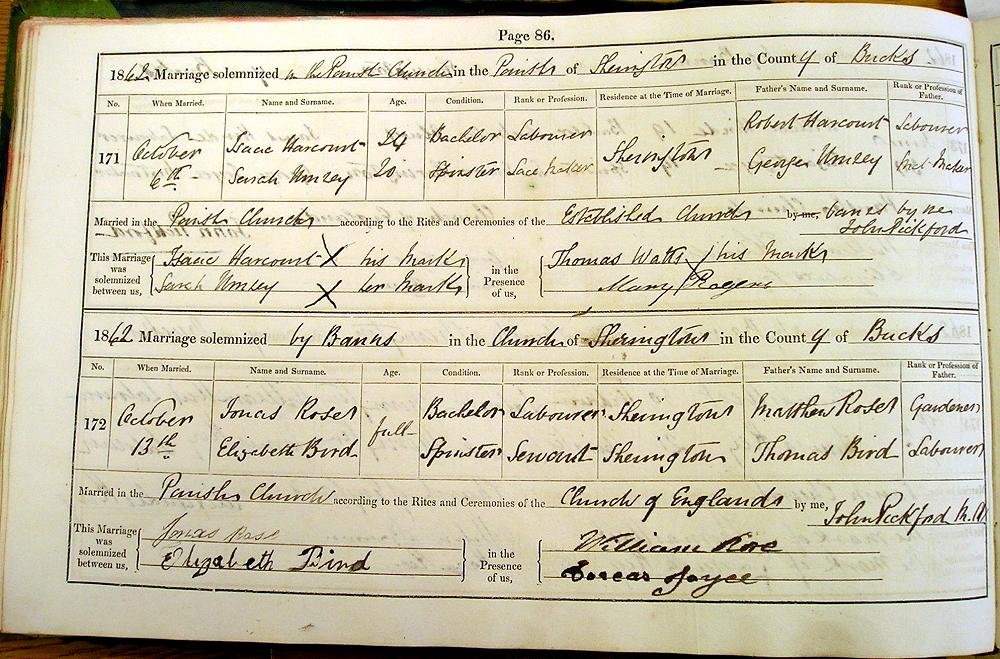 Page 86.
1862 Marriage solemnized in the Parish Church in the Parish of Sherington in the County of Bucks
No. When Married. Name and Surname. Age. Condition. Rank or Profession. Residence at the Time of Marriage. Father's Name and Surname. Rank or Profession of Father.
171 October 6th Isaac Harcourt 24 Bachelor Labourer Sherington Robert Harcourt Labourer
Sarah Umney 20 Spinster Lace Maker George Umney Maker
Married in the Parish Church according to the Rites and Ceremonies of the Established Church by me, banns by me
John Pickford
This Marriage was solemnized between us, Isaac Harcourt X his Mark in the Presence of us, Thomas Watts X his Mark
Sarah Umney X her Mark Mary Rogers
1862 Marriage solemnized by Banns in the Church of Sherington in the County of Bucks
No. When Married. Name and Surname. Age. Condition. Rank or Profession. Residence at the Time of Marriage. Father's Name and Surname. Rank or Profession of Father.
172 October 13th Jonas Rose full Bachelor Labourer Sherington Matthew Rose Gardener
Elizabeth Bird Spinster Servant Sherington Thomas Bird Labourer
Married in the Parish Church according to the Rites and Ceremonies of the Church of England by me, John Pickford M.A.
This Marriage was solemnized between us, Jonas Rose in the Presence of us, William Rose
Elizabeth Bird Dorcas Joyce